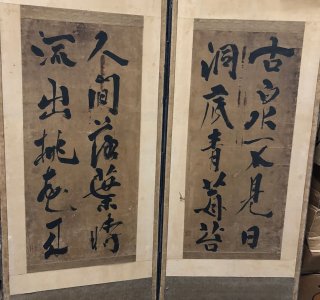 古泉不見日
洞底青莓苔
人間落葉時
流出桃花來